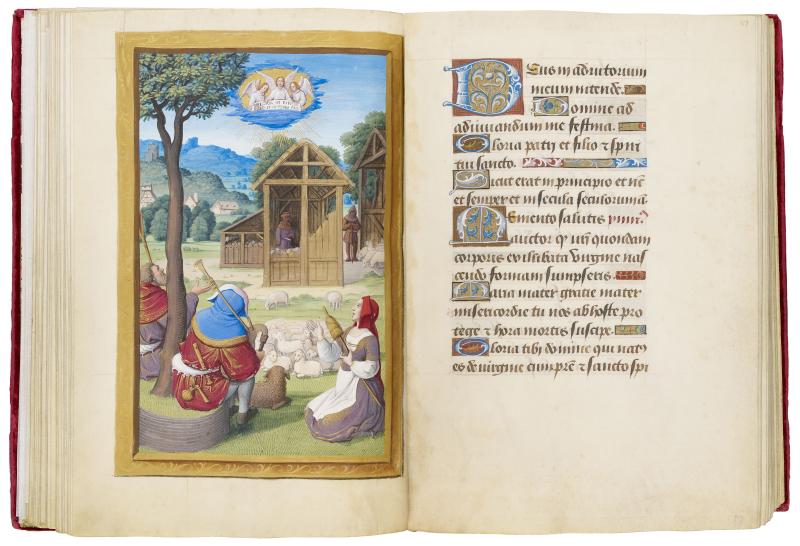 Deus in adiutorium
meum intende.
Domine ad
adiuuandum me festina.
Gloria patri et filio ⁊ spiri
tui sancto.
Sicut erat in principio et nūc
et semper et in secula seculorū amē
Memento salutis
auctor quondam
corporis ex illibata virgine nas
cendo formam sumpseris.
Maria mater gracie mater
misericordie tu nos ab hoste pro
tege ⁊ hora mortis suscipe.
Gloria tibi domine qui natꝰ
es de virgine cum pr̄e ⁊ sancto spi